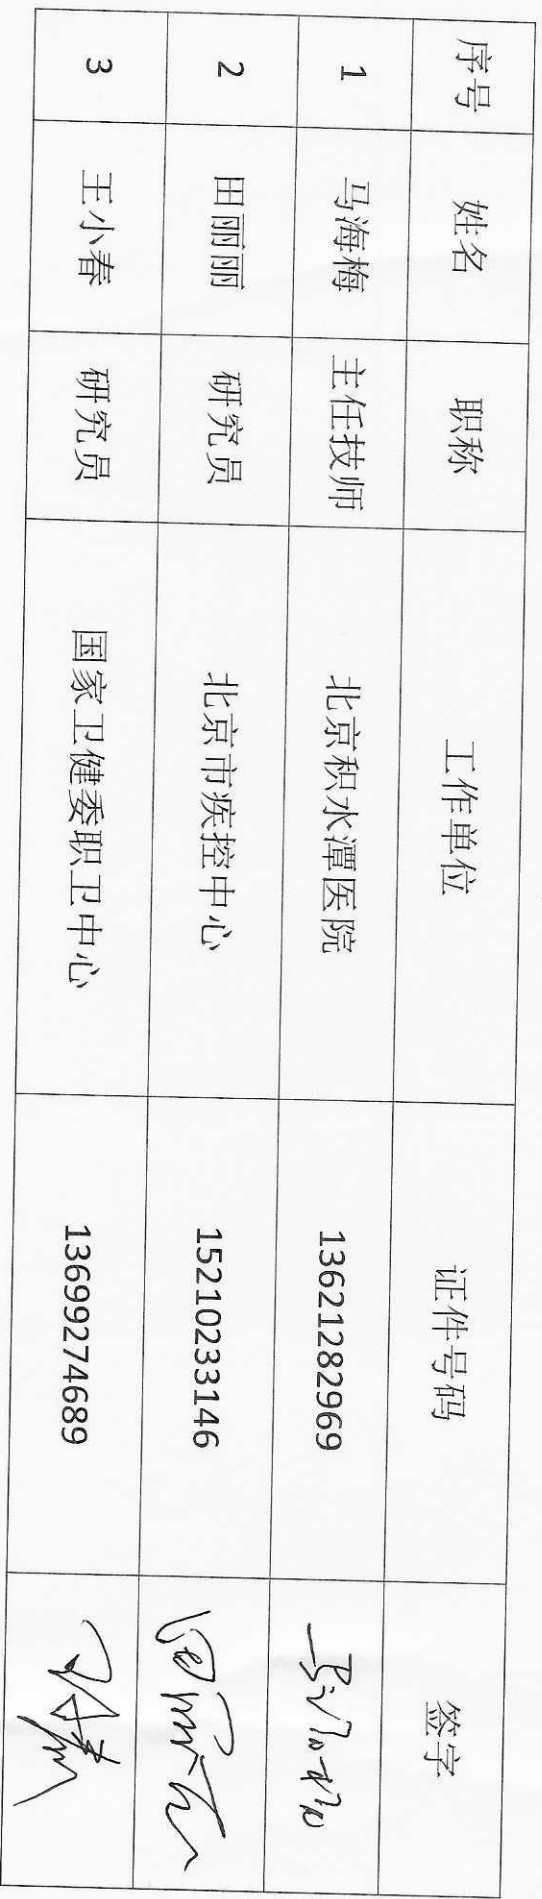 序号 姓名 职称 工作单位 证件号码 签字
1 马海梅 主任技师 北京积水潭医院 13621282969 马海梅
2 田丽丽 研究员 北京市疾控中心 15210233146 田丽丽
3 王小春 研究员 国家卫健委职卫中心 13699274689